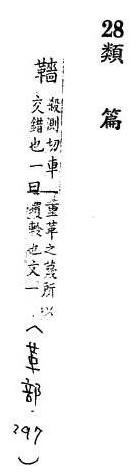 28類篇
轖 殺測切車一重革之蔽所以
交錯也一曰環軨也文一
（革部．297）